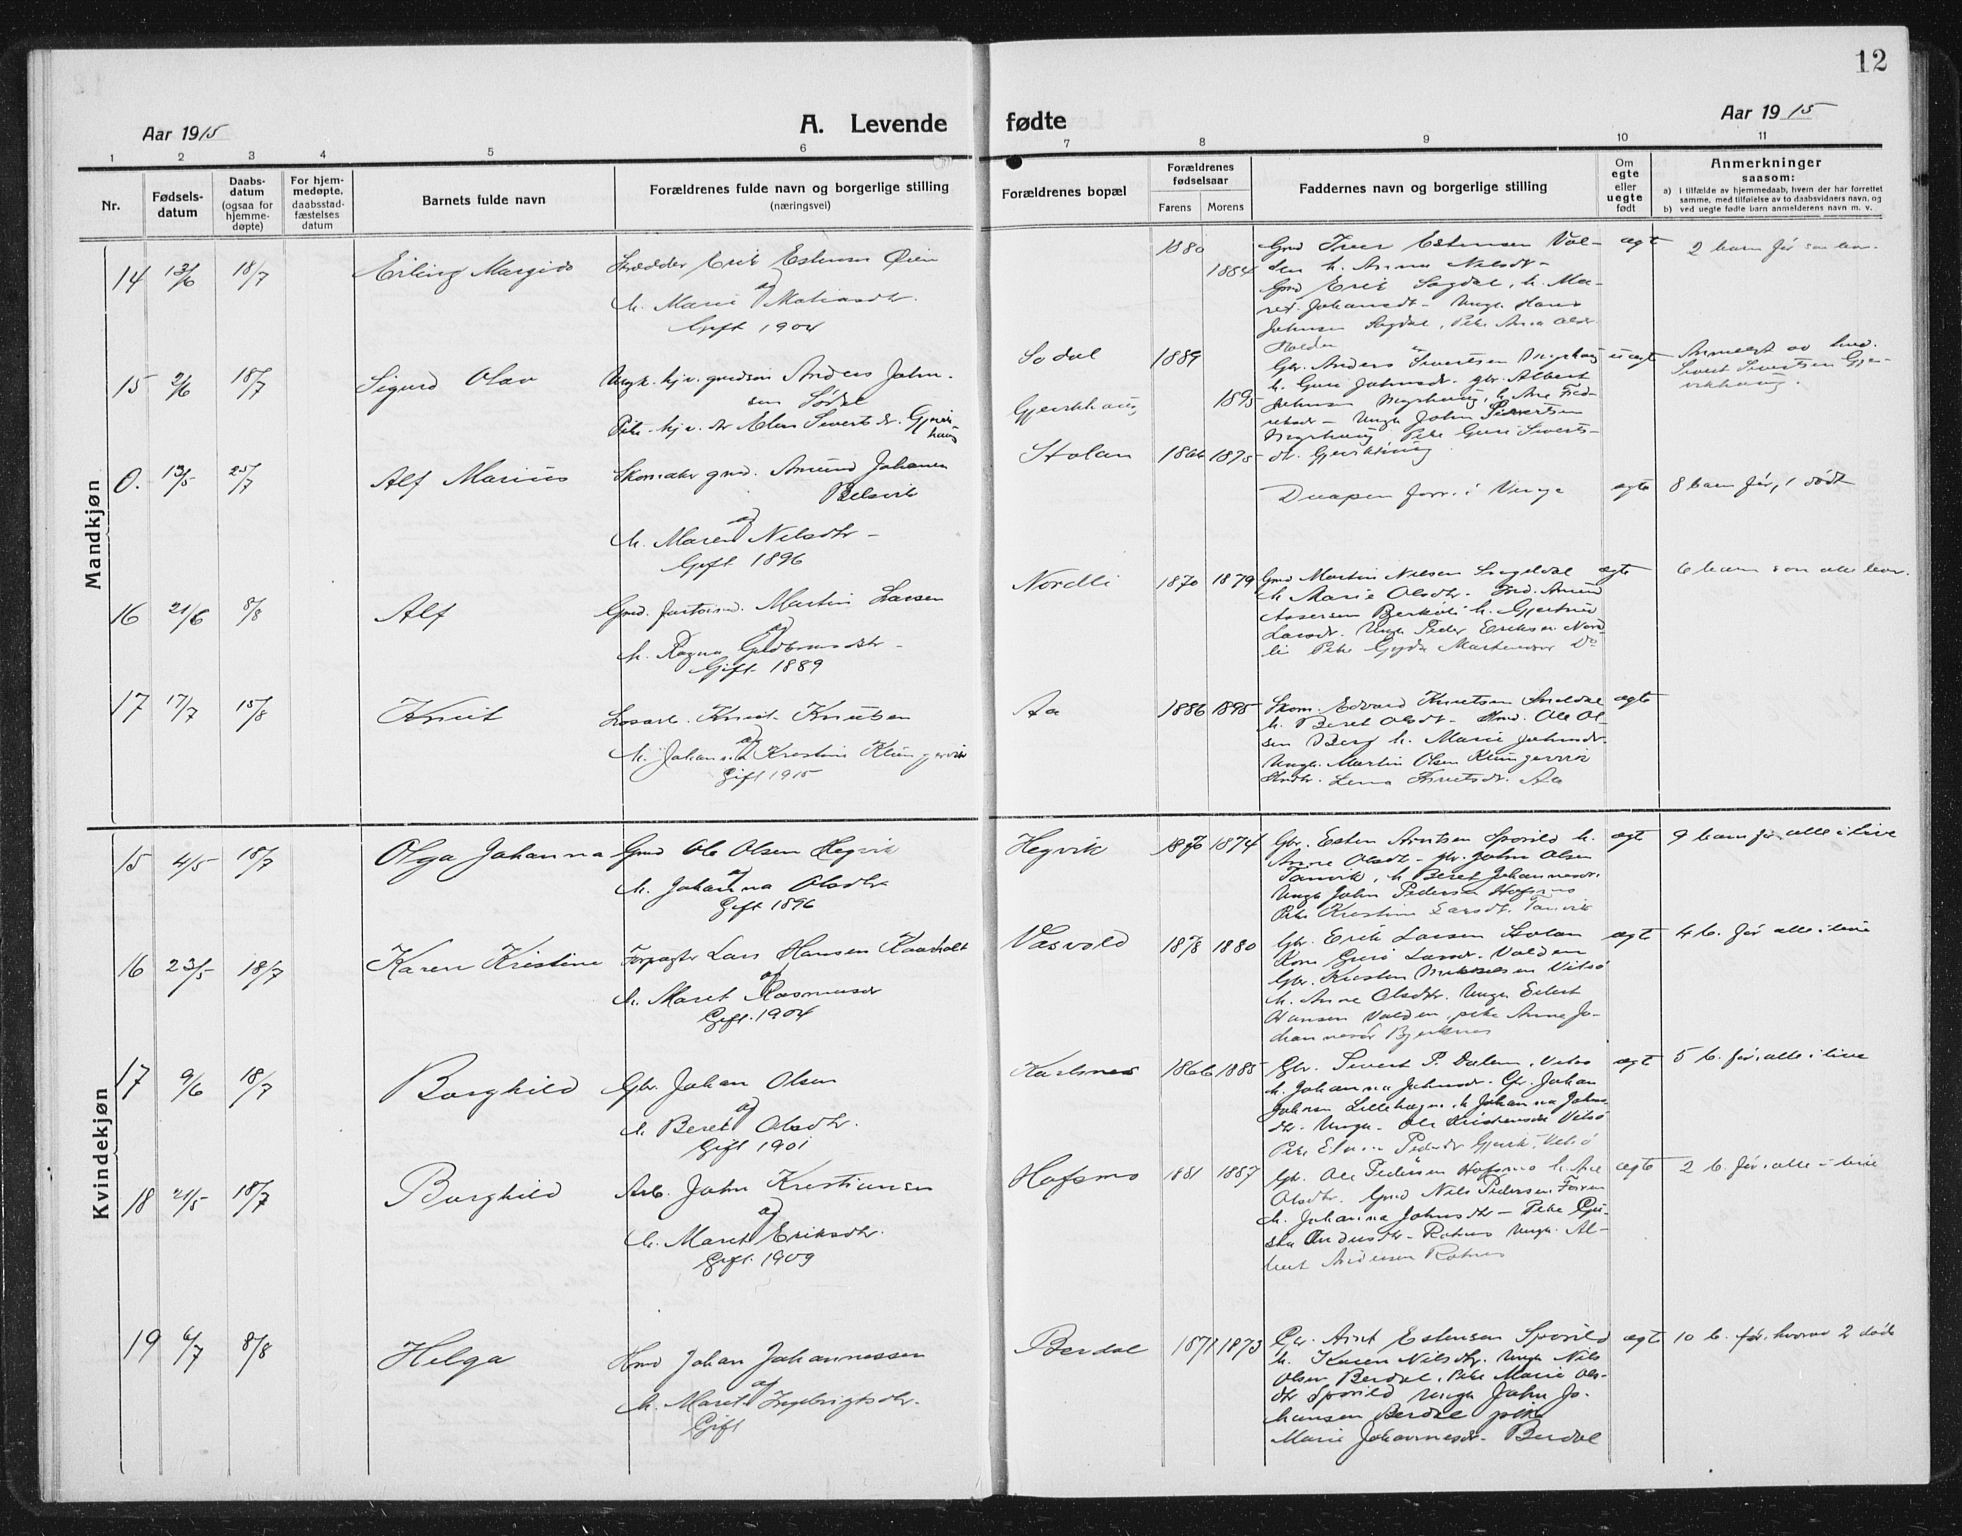 12
Aar 1915
A. Levende
fødte
Aar 1915
1 2 3 4 5 6 7 8 9 10 11
Nr.
Fødsels-
datum
Daabs-
datum
(ogsaa for
hjemme-
døpte)
For hjem-
medøpte,
daabsstad-
fæstelses
datum
Barnets fulde navn
Forældrenes fulde navn og borgerlige stilling
(næringsvei)
Forældrenes bopæl
Forældrenes
fødselsaar
Farens Morens
Faddernes navn og borgerlige stilling
Om
egte
eller
uegte
født
Anmerkninger
saasom:
a) I tilfælde av hjemmedaab, hvem der har forrettet
samme, med tilføielse av to daabsvidners navn, og
b) ved uegte født barn anmelderens navn m. v.
Mandkjøn
14 13/6 18/7 Erling Margido
Skrædder Erik Estensen Øien
og
h. Marie Mathiasdtr.
Gift 1904
1880
1884
Gmd Iver Estensen Val-
den h. Anne Nilsdr-
Gmd Erik Sagdal, h. Ma-
ret Johansdt- Ungk. Hans
Johnsen Sagdal, Pike Anna Olsdr.
Holden
egt
2 barn før som lever.
15 2/6 18/7 Sigurd Olav
Ungk. hjv. gmdsøn Anders John-
sen Sødal
Pike hjv. dt Elen Sivertsdr. Gjervik-
haug
Sodal 1889
Gjervikhaug 1895
Gbr. Anders Sivertsen
h. Guri Johnsdr. gbr. Albert
Johnsen h. Ane Fred-
reksdr - Ungk John Sivertsen
Pike Guri Siverts-
dr. Gjervikhaug
uegt
Anmeldt av
Sivert Sivertsen Gjer-
vikhaug.
0. 13/5 25/7 Alf Marius
Skomaker gmd. Amund Johansen
Belsvik
og
h. Maren Nilsdtr -
Gift 1896
Stolan 1866 1875
Daapen forr. i Vinge
egte
8 barn før, 1 dødt
16 21/6 8/8 Alf
Gmd. Martin Larsen
og
h. Ragna Guldbransdtr -
Gift 1889
Nordli 1870 1879
Gmd Martin Nilsen
h Marie Olsdtr. Amund
Assersen h. Gjertrud
Larsdr. Ungk Peder Eriksen Nord-
li Pike Gyda Martensen Do
egte
6 barn som alle lever.
17 17/7 15/8 Knut
Løsarb. Knut Knutsen
og
h. Johanna Kristine Klungervik
Gift 1915
Aa 1886 1895
Skom. Edvard Knutsen
h. Beret Olsdt - Ole Ol-
sen Berg h. Marie Johnsdr.
Ungk. Martin Olsen Klungervik
Lena Knutsdr. Aa
egte
Kvindekjøn
15 4/5 18/7 Olga Johanna
Gmd Ole Olsen Hegvik
og
h. Johanna Olsdtr
Gift 1896
Hegvik 1876 1874
Gbr. Esten Arntsen Sporild h.
Anne Olsdt - gbr. John Olsen
Tanvik, h Beret Johannesdr.
Ungk John Pedersen Hofsmo
Pike Kristine Larsdt. Tanvik
egt
9 barn før alle i live
16 23/5 18/7 Karen Kristine
Forpagter Lars Hansen Kaarholt
og
h. Maret Rasmusdr
Gift. 1904
Vasvold 1878 1880
Gbr. Erik Larsen Stolan
Kone Guri Larsdr. Valden
Gbr. Kristen Mikkelsen Vitsø
h. Anne Olsdtr. Ungk Eilert
Hansen Valden, pike Anna Jo-
hannesdr Bjerknes
egt
4 b. før alle i live
17 9/6 18/7 Borghild
Gbr. Johan Olsen
og
h. Beret Olsdtr.
Gift 1901
Karlsnes 1866 1885
Gbr. Sivert P. Dalum, Vitsø
h. Johanna Johnsdr. Gbr. Johan
Johnsen Lillehagen, h Johanna Johns-
dtr. Ungk. Ole Kristensen Vitsø
Pike Elen Pedersdr Gjervik, Vitsø
egt
5 b. før, alle i live
18 21/5 18/7 Borghild
Arb. John Kristiansen
og
h. Maret Eriksdtr.
Gift. 1909
Hofsmo 1881 1887
Gbr. Ole Pedersen Hofsmo h. Ane
Olsdtr. Gmd Nils Pedersen Forren
h. Johanna Johnsdtr - Pike
Andersdtr - Rotnes Ungk. Al-
bert Andersen Rotnes
egte
2 b. før, alle i live
19 6/7 8/8 Helga
Hmd Johan Johannessen
og
h. Maret Ingebrigtsdtr.
Gift
Berdal 1871 1873
Gbr. Arnt Estensen Sporild
h. Karen Nilsdtr. Ungk Nils
Olsen Berdal, Pike Marie Ols-
dtr Sporild Ungk John Jo-
hansen Berdal pike
Marie Johannesdr- Berdal
egt
10 b. før, hvorav 2 døde